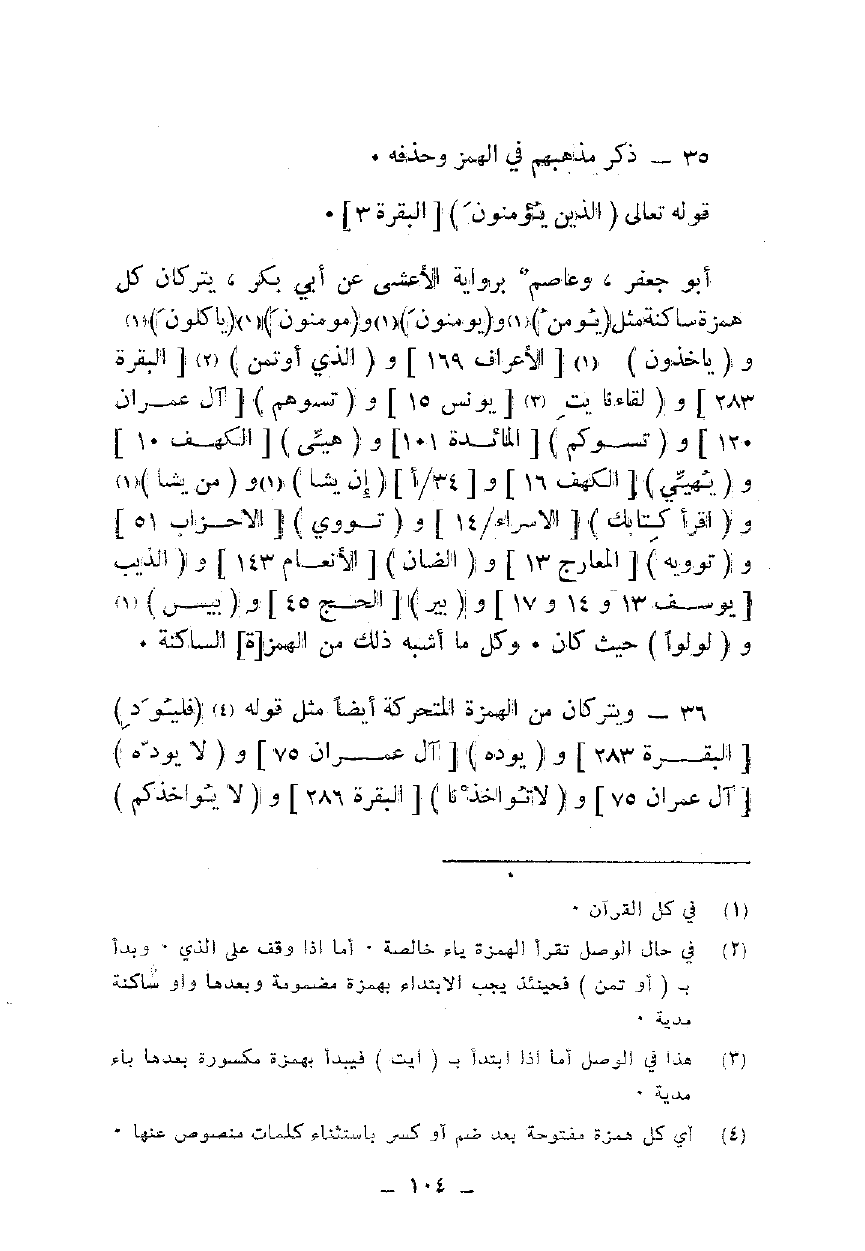 ٣٥ ــ ذكر مذهبهم في الهمز وحذفه ٠
قوله تعالى ( الذين يُؤمنونَ ) [ البقرة ٣ ] ٠
أبو جعفر ، وعاصمٌ برواية الأعشى عن أبي بكر ، يتركان كل
همزة ساكنة مثل (يُومن) (١) و(يومنونَ) (١) و(مومنونَ) (١) (ياكلونَ) (١)
و ( ياخذون ) (١) [ الأعراف ١٦٩ ] و ( الذي أوتمن ) (٢) [ البقرة
٢٨٣ ] و ( لقاءنا يتِ (٣) [ يونس ١٥ ] و ( تسوهم ) [ آل عمران
١٢٠ ] و ( تسوكم ) [ المائدة ١٠١] و ( هيّى ) [ الكهف ١٠ ]
و ( يُهيّي ) [ الكهف ١٦ ] و [ ٣٤/أ ] ( إن يشا ) (١) و ( من يشا ) (١)
و ( اقرأ كتابك ) [ الاسراء/١٤ ] و ( تووي ) [ الاحزاب ٥١ ]
و ( توويه ) [ المعارج ١٣ ] و ( الضان ) [ الأنعام ١٤٣ ] و ( الذيب
[ يوسف ١٣ و ١٤ و ١٧ ] و ( بير ) [ الحج ٤٥ ] و ( بيس ) (١)
و ( لولواً ) حيث كان ٠ وكل ما أشبه ذلك من الهمز[ة] الساكنة ٠
٣٦ ــ ويتركان من الهمزة المتحركة أيضاً مثل قوله (٤) (فليُوَدِ)
[ البقرة ٢٨٣ ] و ( يوده ) [ آل عمران ٧٥ ] و ( لا يودّه )
[ آل عمران ٧٥ ] و ( لاتُواخذْنا ) [ البقرة ٢٨٦ ] و ( لا يُواخذكم )
(١) في كل القرآن ٠
(٢) في حال الوصل تقرأ الهمزة ياء خالصة ٠ أما اذا وقف على الذي ٠ وبدأ
بـ ( أو تمن ) فحينئذ يجب الابتداء بهمزة مضمومة وبعدها واو ساكنة
مدية ٠
(٣) هذا في الوصل أما اذا ابتدأ بـ ( ايت ) فيبدأ بهمزة مكسورة بعدها ياء
مدية ٠
(٤) أي كل همزة مفتوحة بعد ضم أو كسر باستثناء كلمات منصوص عنها ٠
ـ ١٠٤ ـ